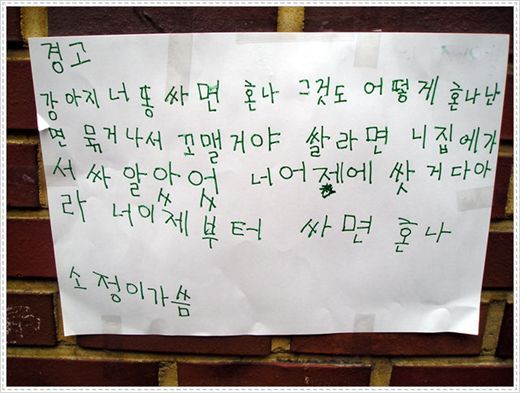 경고
강아지너똥싸면 혼나 그것도 어떻게 혼나난
면 묶거나서 꼬맬거야 쌀라면 니집에가
서 싸알았어 너어제에 쌋 거다아
라 너이제부터 싸면 혼나
소정이가씀